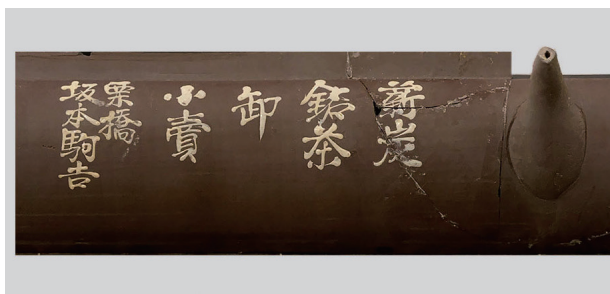 薪炭
銘茶
卸
小賣
栗橋
坂本駒吉